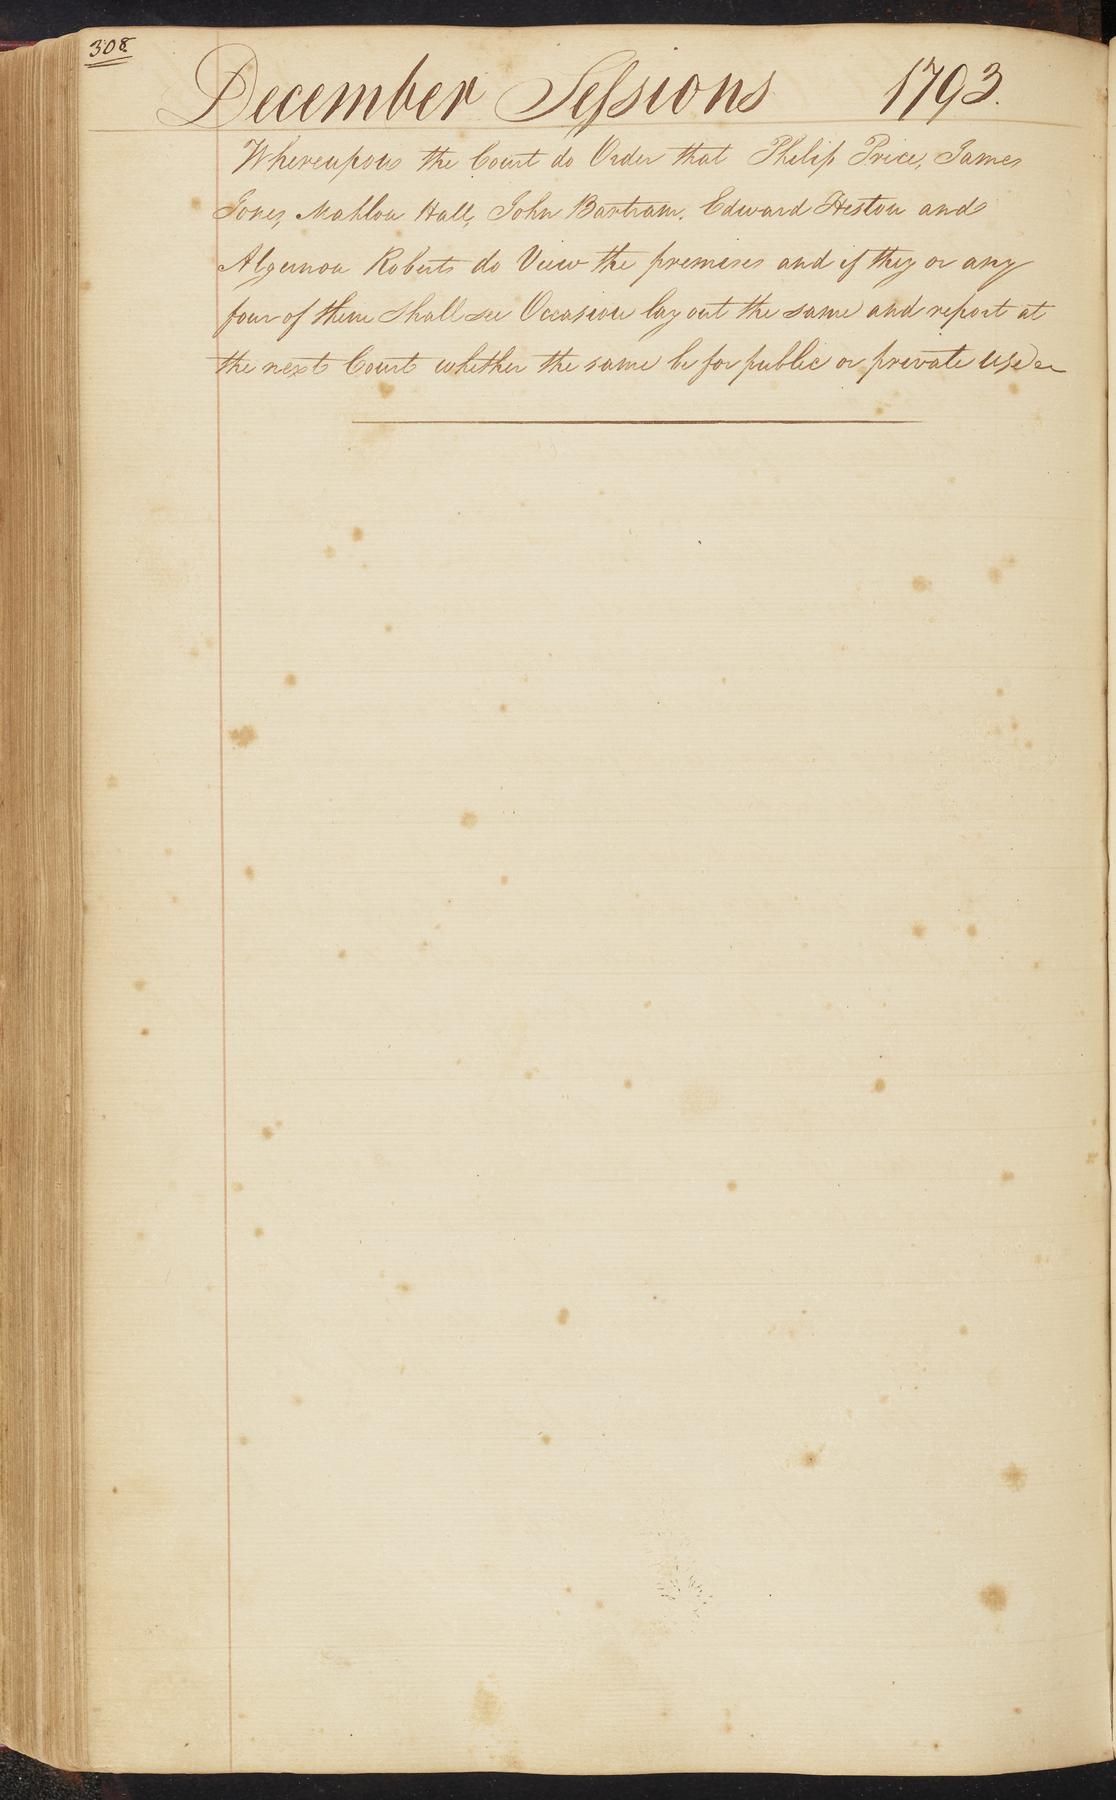 308
December Sessions 1793.
Whereupon the Court do Order that Philip Price, James
Jones, Mahlon Hall, John Bartram, Edward Heston and
Algernon Roberts do View the premises and if they or any
four of them shall see Occasion lay out the same and report at
the next Court whether the same be for public or private use